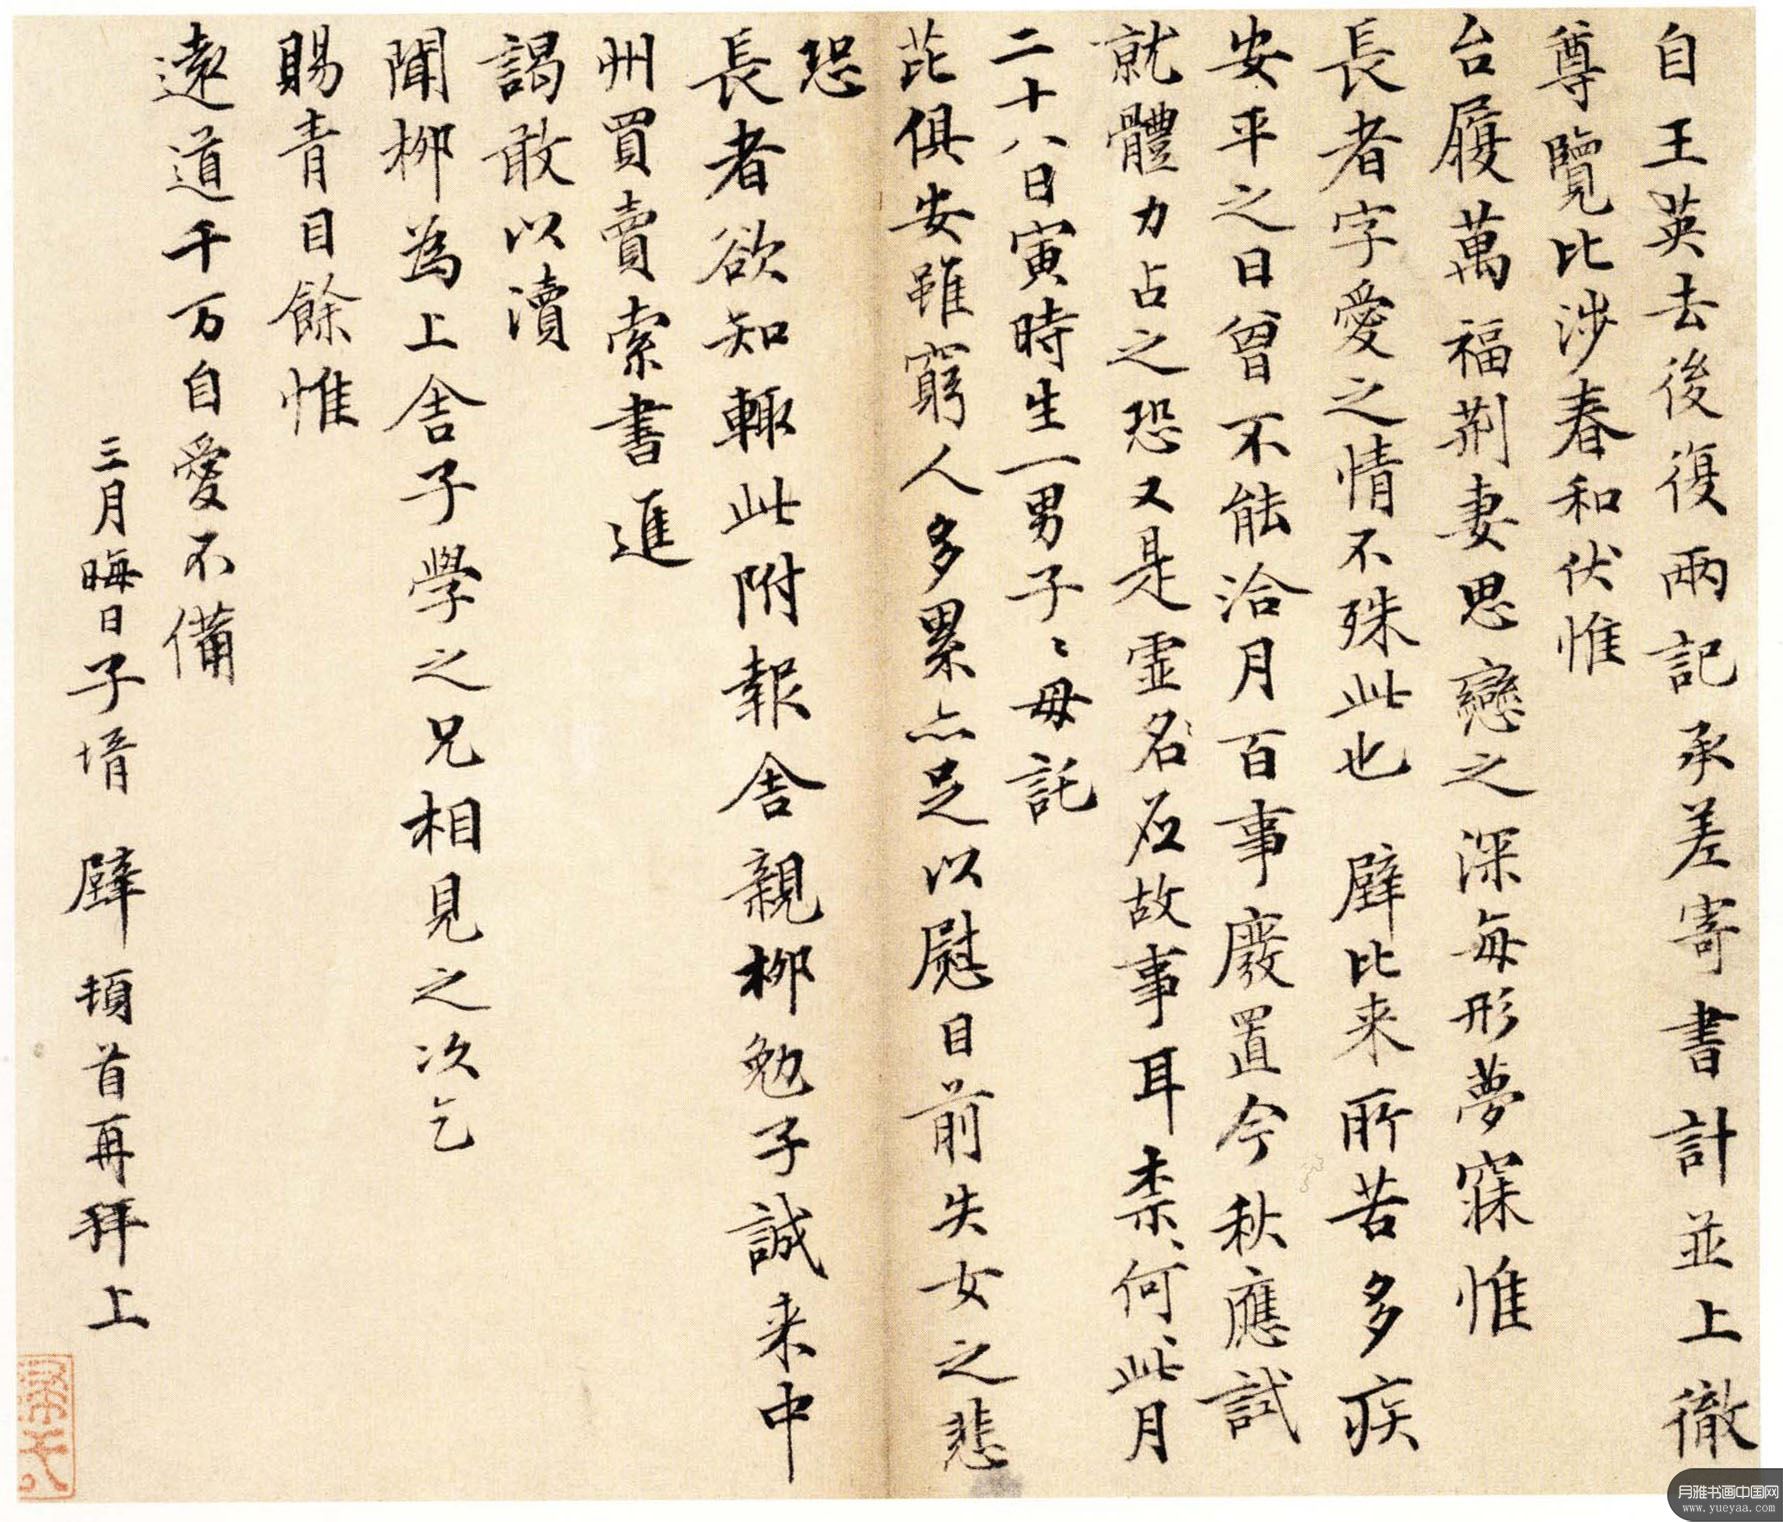 自王英去後復兩記承差寄書計並上徹
尊覽比涉春和伏惟
台履萬福荊妻思戀之深每形夢寐惟
長者字愛之情不殊此也 璧比来所苦多疾
安平之日曾不能洽月百事廢置今秋應試
就體力占之恐又是虛名應故事耳柰何柰何此月
二十八日寅時生一男子子母託
芘俱安雖窮人多累亦足以慰目前失女之悲
恐
長者欲知輙此附報舍親柳勉子誠来中
州買賣索書進
謁敢以瀆
聞柳為上舍子學之兄相見之次乞
賜青目餘惟
遠道千万自愛不備
三月晦日子壻 璧 頓首再拜上
月雅书画中国网
www.yueyaa.com